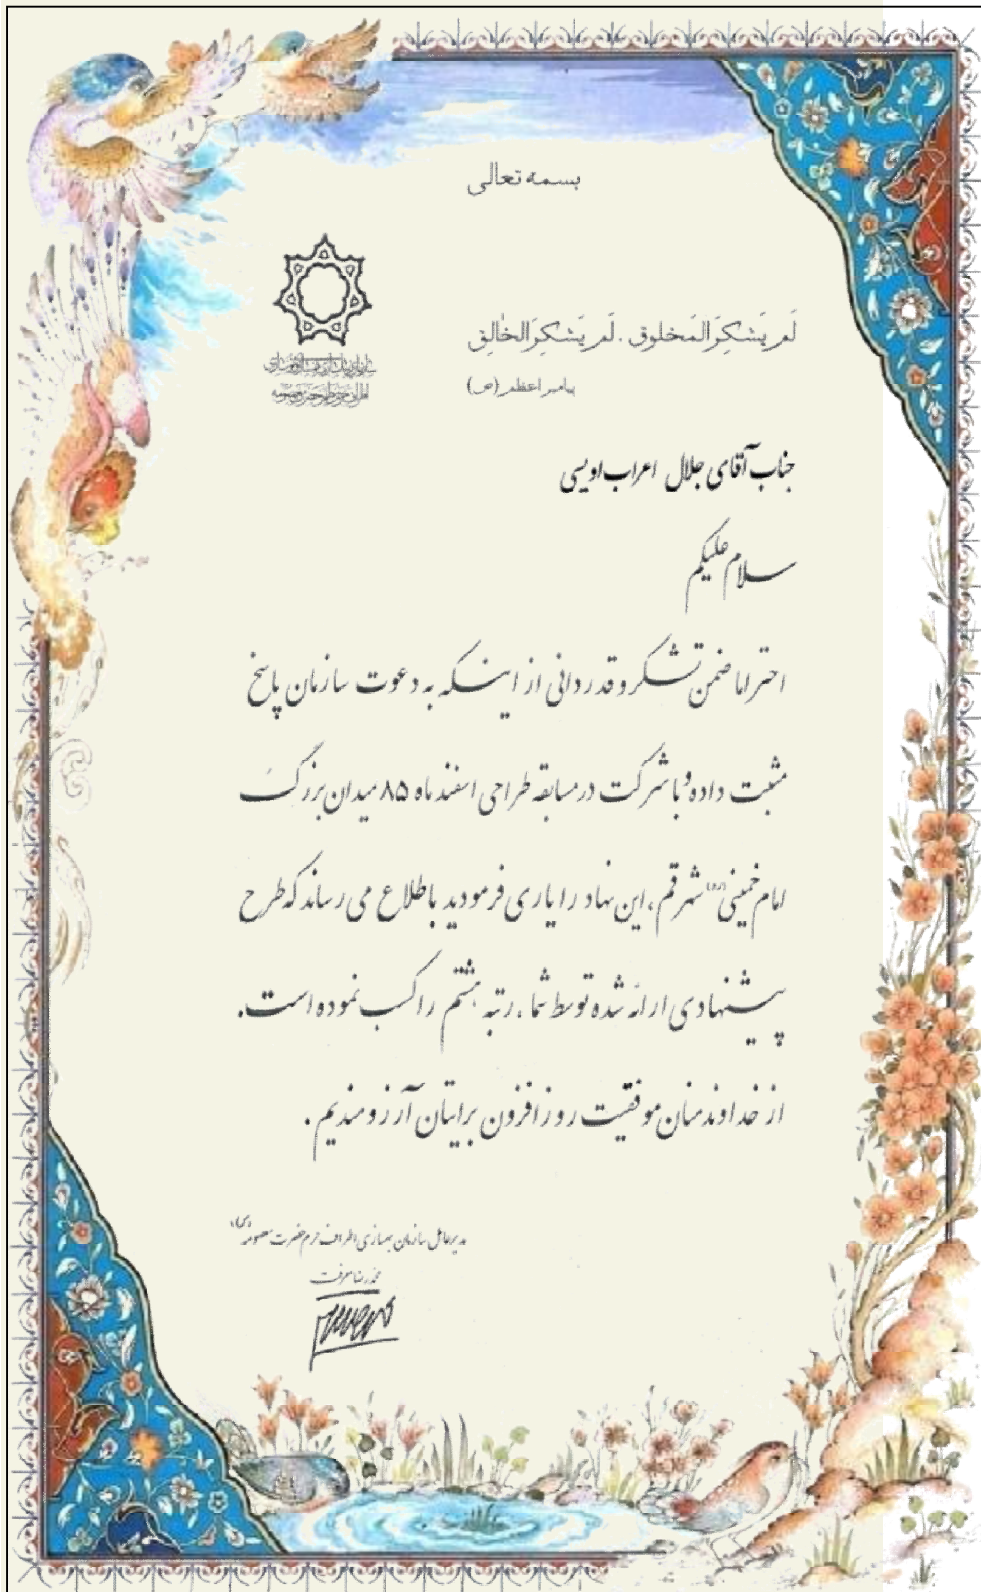 بسمه تعالی
لَم یَشکِرَّالمَخلوق . لَم یَشکِرَالخٰالِق
پیامبر اعظم (ص)
جناب آقای جلال اعراب اویسی
سلام علیکم
احتراما ضمن تشکر و قدردانی از اینکه به دعوت سازمان پاسخ
مثبت داده و با شرکت در مسابقه طراحی اسفند ماه ۸۵ میدان بزرگ
امام خمینی (ره) شهر قم ، این نهاد را یاری فرمودید باطلاع می رساند که طرح
پیشنهادی ارائه شده توسط شما ، رتبه هشتم را کسب نموده است .
از خداوند منان موفقیت روز افزون برایتان آرزومندیم .
مدیرعامل سازمان بهسازی اطراف حرم حضرت معصومه (س)
محمدرضا معرفت